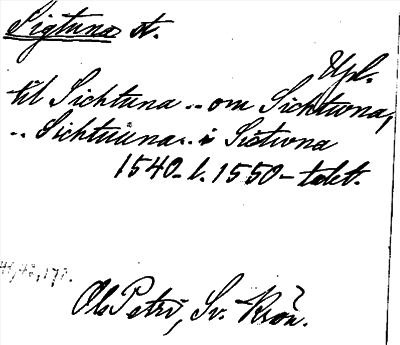 Sigtuna st.
Upl.
til Sichtuna .. om Sichtwna,
.. Sichtuuna .. i Sictwna
1540- l. 1550-talet.
Ol. Petri, Sv. Krön.